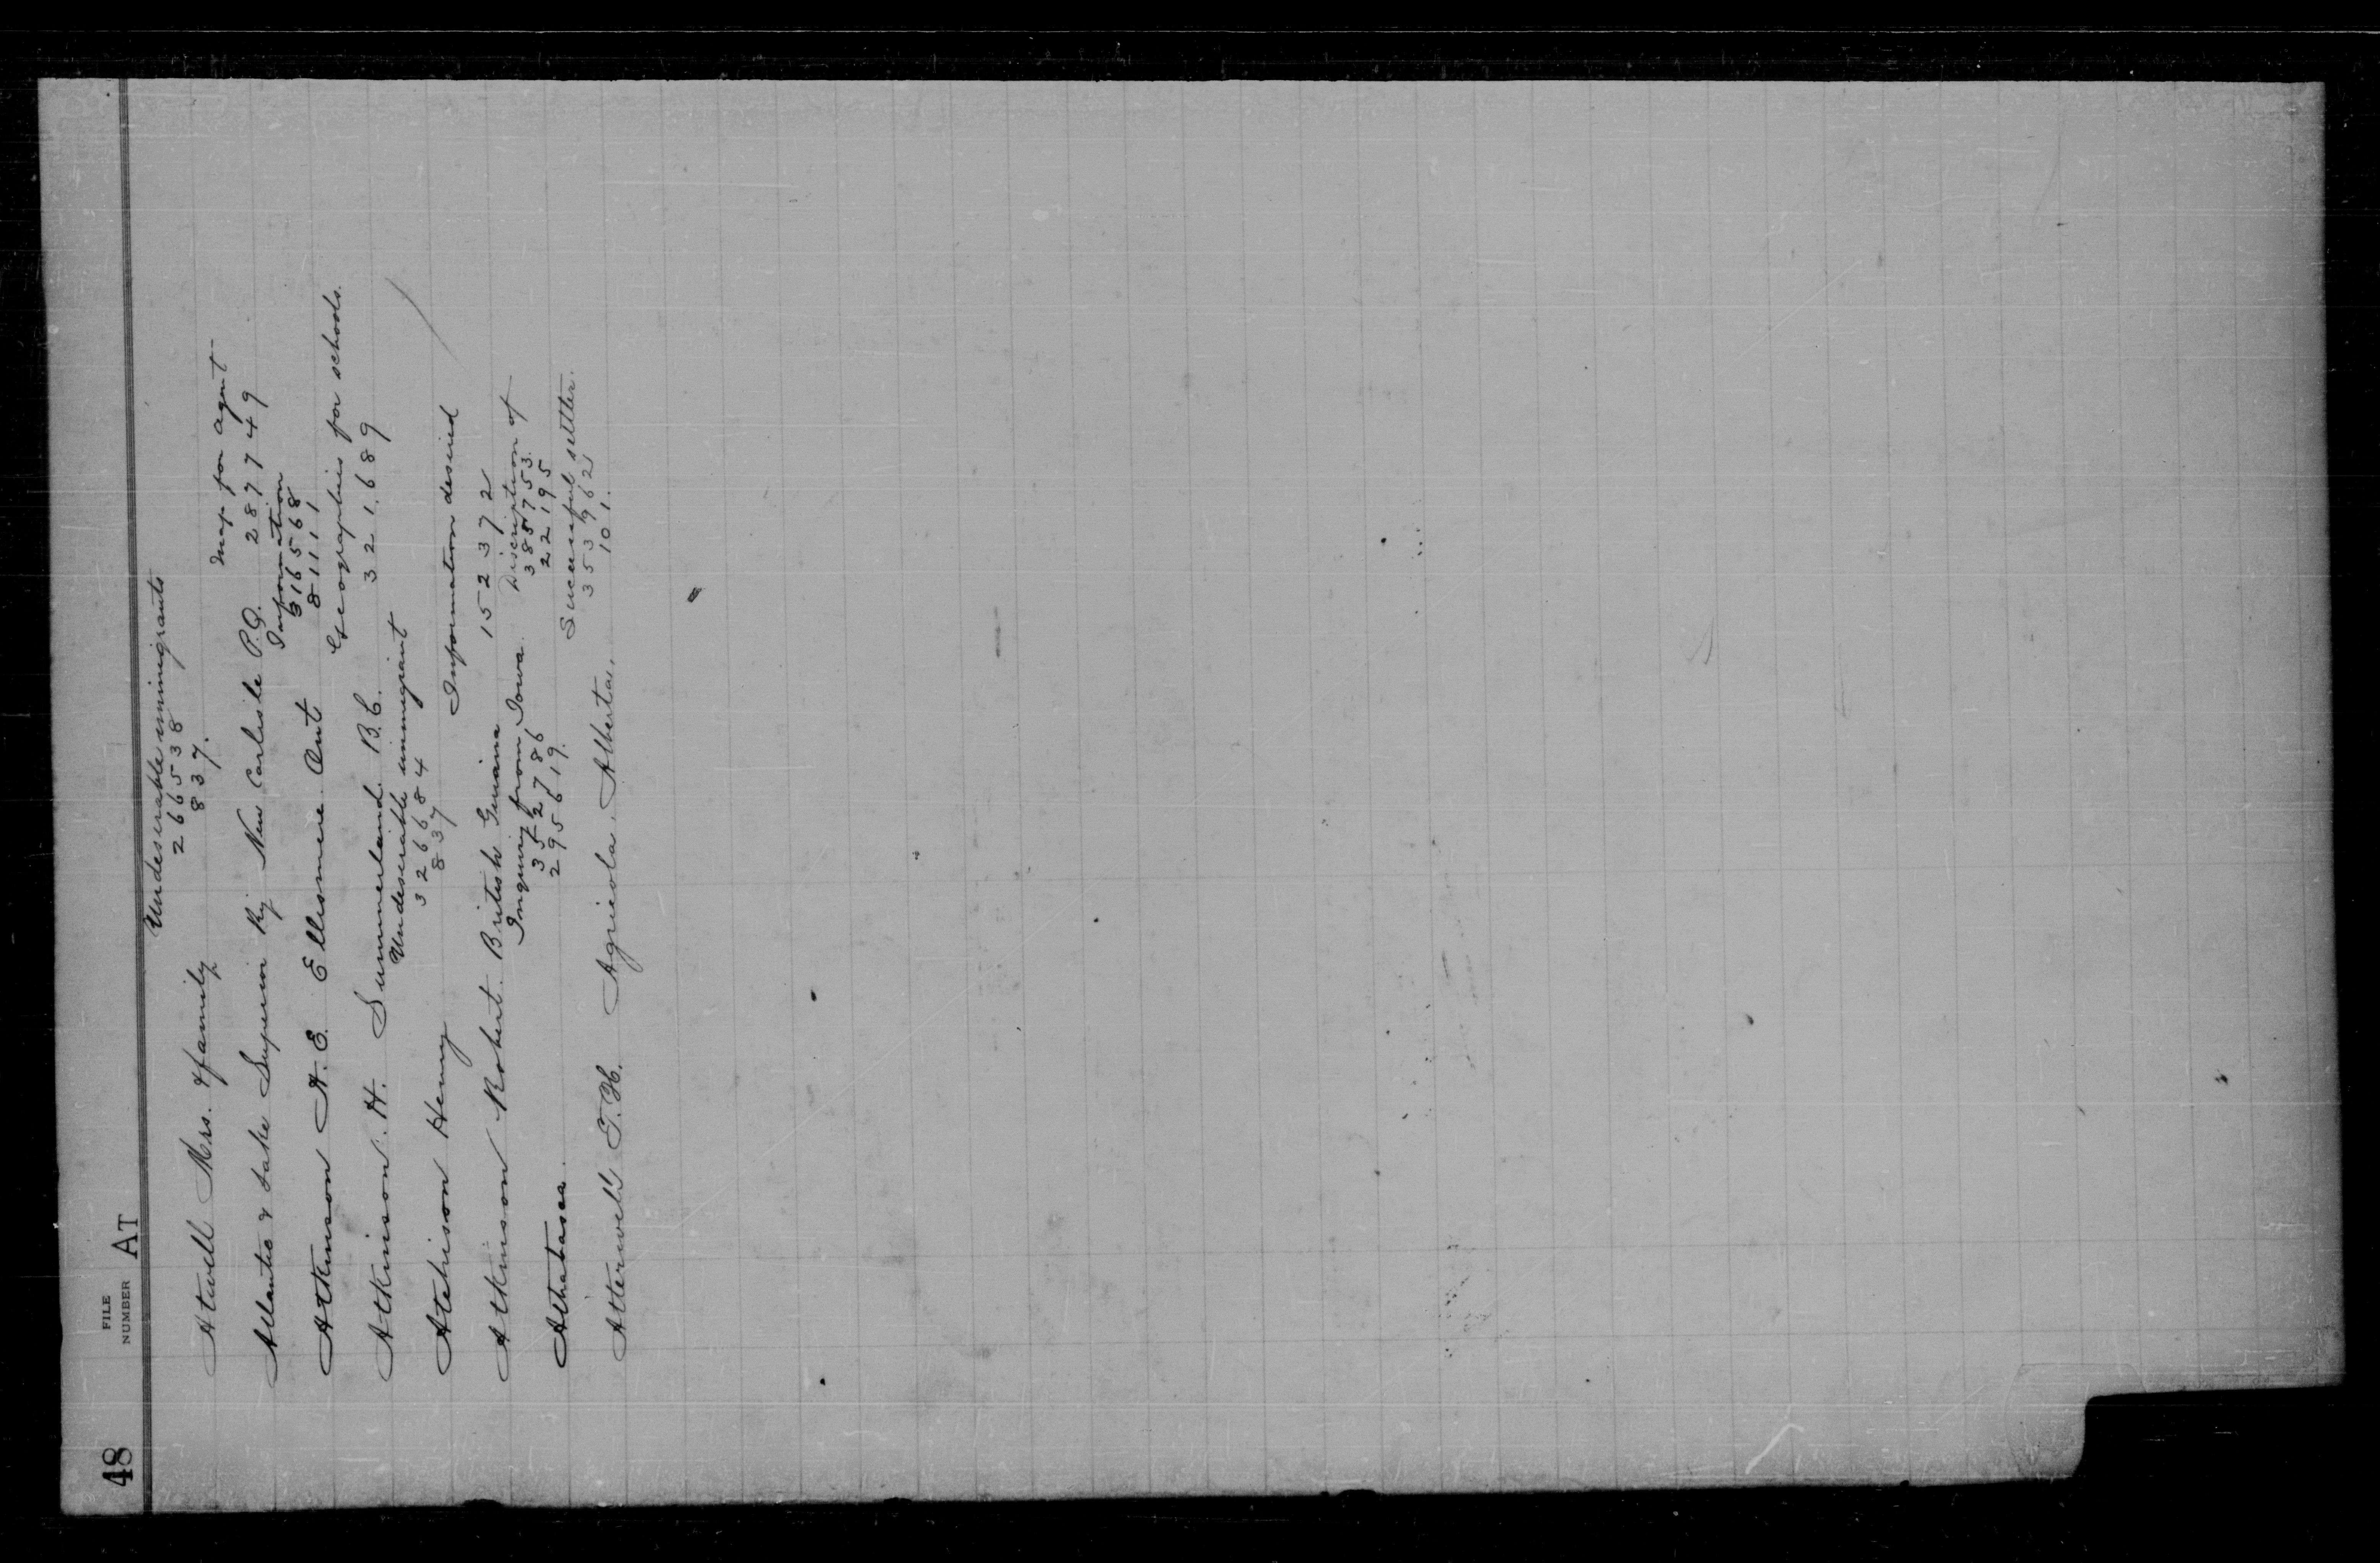 48
FILE
NUMBER
AT
Undeserable immigrants
266538
Atwell Mrs. & family 837.
Map for agent
Atlantic & Lake Superior Ry New Carlisle P.Q. 287749
Information
316568
Atkinson A. E. Ellesmere Ont 81111
Geographies for schools.
Atkinson H. Summerland B.C. 321689
Undeserable immigrant
326684
Atchison Henry 837
Information desired
Atkinson Robert. British Guiana 152372
Inquiry from Iowa. Discription of
352786 385753.
Athabasca. 295619. 22195
Successful settler.
353962
Atterwell E. H. Agricola, Alberta, 101.